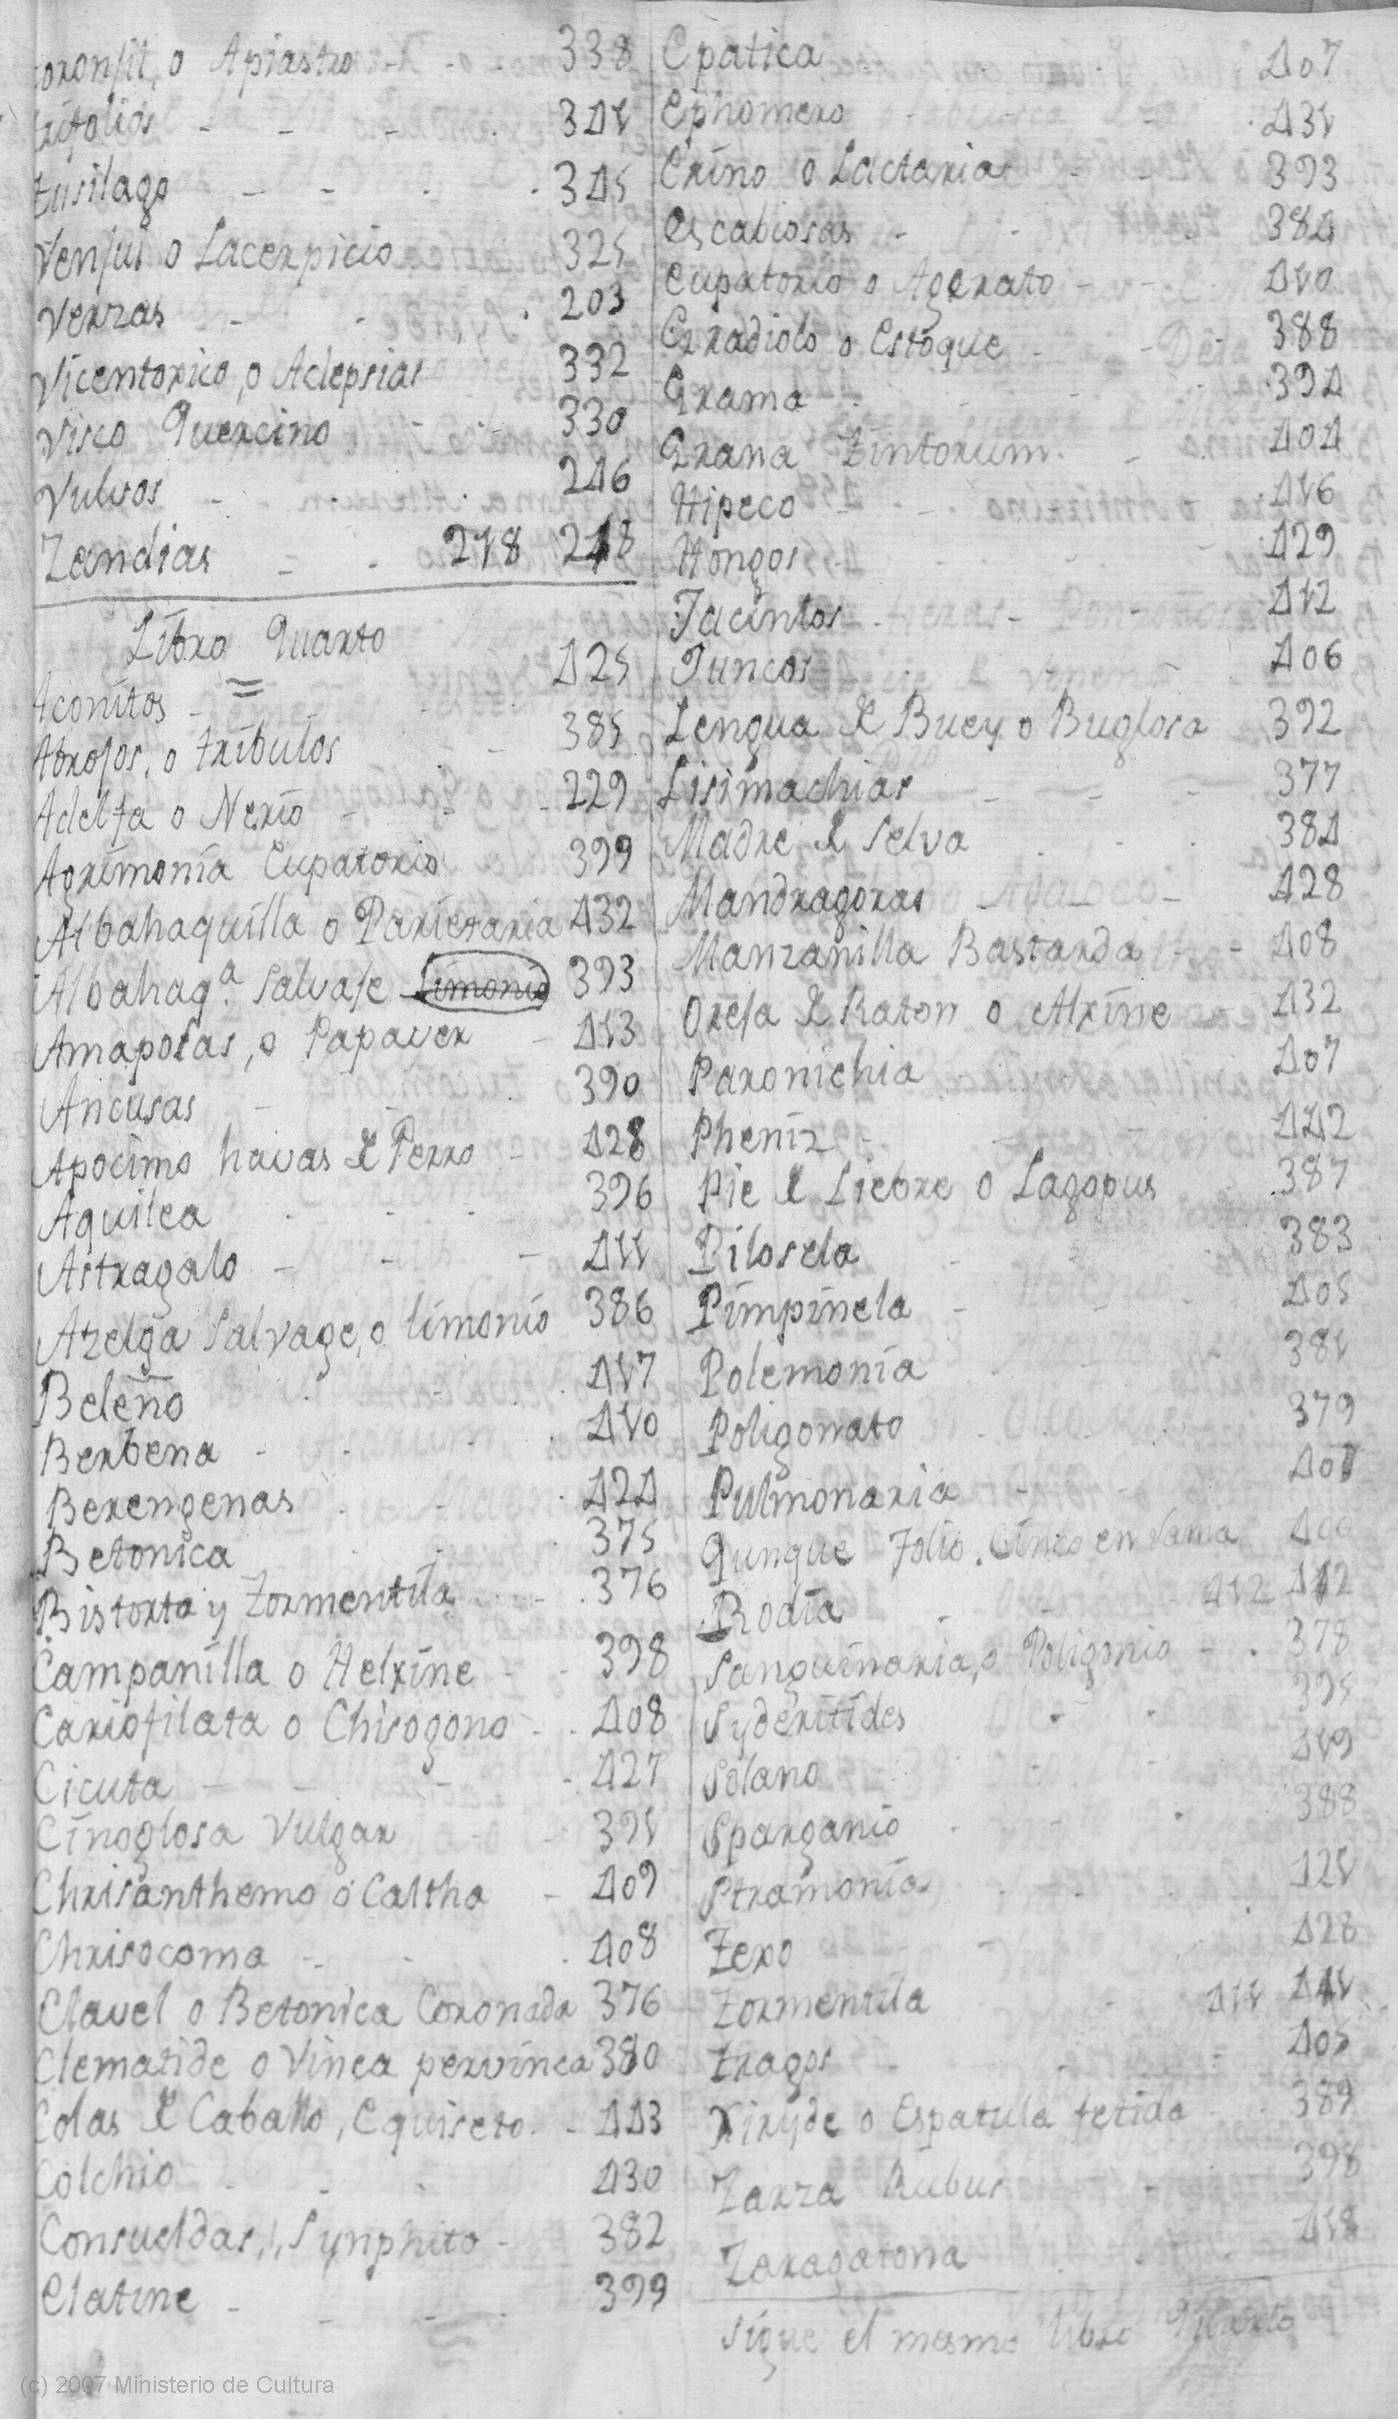 toronjil, o Apiastro - - . 338
trifolios - - - . 341
tusilago - - . . 345
Venjui o Lacerpicio 325
Verzas - . . 203
Vicentorico, o Aclepsias 332
Visco Quercino - - 330
Vulvos - . . 246
Zandias - . 218 218
Libro Quarto
=
Aconitos - . . 425
Abrojos, o tribulos - - 385
Adelfa o Nerio - - - 229
Agrimonia Eupatorio 399
Albahaquilla o Parietaria 432
Albahaq.ª Salvaje Limonio 393
Amapolas, o Papaver - 413
Ancusas - - . 390
Apocimo havas de Perro - 428
Aquilea . . . 396
Astragalo - - - 411
Azelga Salvage, o limonio 386
Beleño . - . 417
Berbena - . . . 410
Berengenas . . . 424
Betonica . . . 375
Bistorta y Tormentila . . . 376
Campanilla o Helxine - - 398
Cariofilata o Chisogono - . 408
Cicuta - - - . 427
Cinoglosa Vulgar - - 391
Chrisanthemo o Caltha - 409
Chrisocoma - . . 408
Clavel o Betonica Coronada 376
Clematide o Vinca pervinca 380
Colas de Caballo, Equiseto. - 443
Colchio . . . 430
Consueldas, Synphito - 382
Elatine - - - . 399
Epatica . . 407
Ephomero . . 431
Erino o Lactaria - - 393
Escabiosas - . . 384
Eupatorio o Agerato - - 410
Gradiolo o Estoque - - 388
Grama . . . 394
Grana Tintorum . - 404
Hipeco - . . 416
Hongos . . . 429
Jacintos . . - 412
Juncos . . . 406
Lengua de Buey o Buglosa 392
Lisimachias - - - 377
Madre de Selva . . . 384
Mandragoras - - 428
Manzanilla Bastarda - - 408
Oreja de Raton o Alxine - 432
Paronichia . . 407
Pheniz - - - 442
Pie de Liebre o Lagopus . 387
Pilosela - . . 383
Pimpinela - . . 405
Polemonia . . . 381
Poligonato . . . 379
Pulmonaria - . . 401
Qunque Folio. Cinco en Rama 400
Rodia . - - 412 412
Sanguinaria, o Poligonio - . 378
Syderitides . . . 395
Solano . - . 419
Sparganio . . . 388
Stramonia . . . 421
Tero - . 428
Tormentila . . 411 441
tragos - . - 405
Xiryde o Espatula fetida . . 389
Zarza Rubus - - 398
Zaragatona . . . 418
Sigue el mesmo libro Quarto
(c) 2007 Ministerio de Cultura